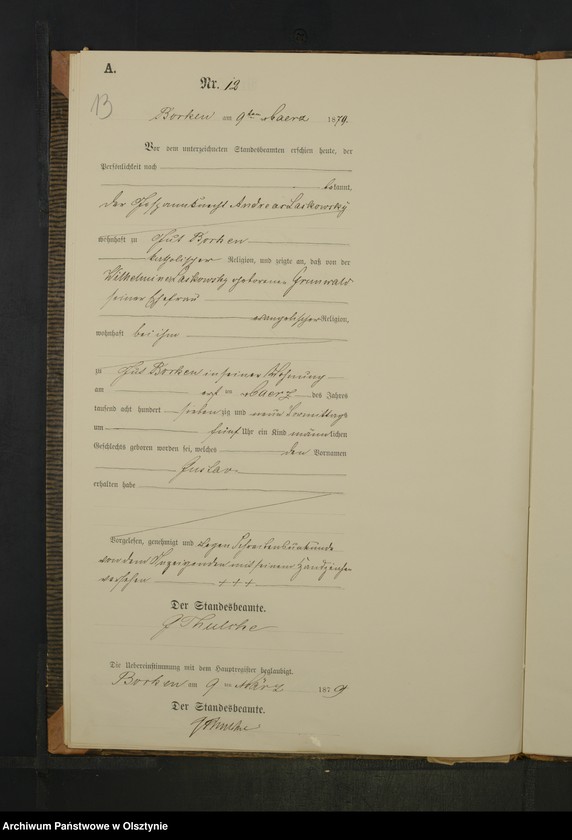 A.
Nr. 12
13
Borken am 9ten Maerz 1879.
Vor dem unterzeichneten Standesbeamten erschien heute, der
Persönlichkeit nach
bekannt,
der Gespannknecht Andreas Laskowsky
wohnhaft zu Gut Borken
katholischer Religion, und zeigte an, daß von der
Wilhelmine Laskowsky geborene Grunwald
seiner Ehefrau
evangelischer Religion,
wohnhaft bei ihm
zu Gut Borken in seiner Wohnung
am Maerz des Jahres
tausend acht hundert siebenzig und neun Vormittags
um fünf Uhr ein Kind männlichen
Geschlechts geboren worden sei, welches den Vornamen
Gustav
erhalten habe
Vorgelesen, genehmigt und wegen Schreibensunkunde
von dem Anzeigenden mit seinem Handzeichen
versehen +++
Der Standesbeamte.
Die Uebereinstimmung mit dem Hauptregister beglaubigt.
Borken am 9ten März 1879
Der Standesbeamte.
Archiwum Państwowe w Olsztynie